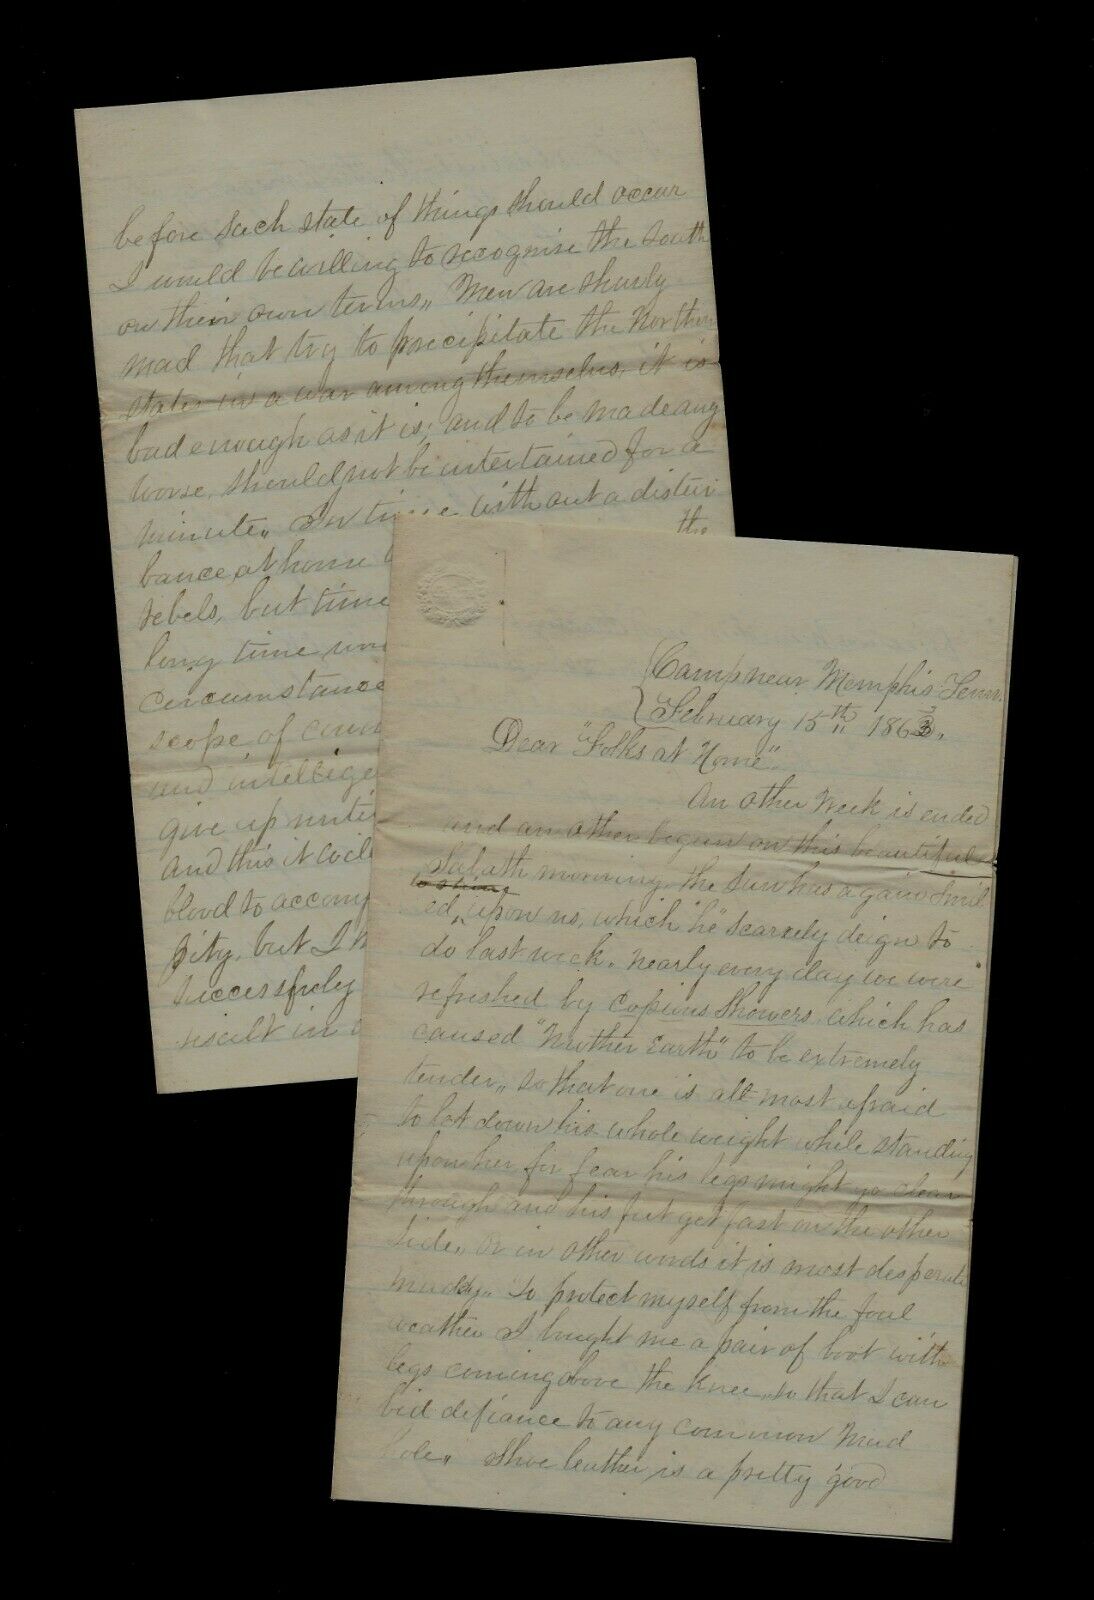 before such state of things should occur
I would be willing to recognise the South
on their own terms,, Men are shurly
mad that try to precipitate the Northern
states in a war among themselvs, it is
bad enough as it is; and to be made any
worse, should not be intertained for a
minute,, In time with out a distur
bance at home
the
rebels, but time
long time
circumstance
scope of
and intellige
give up
And this it
blood to accomp
pity, but I
successfuly
risult in
(Camp near Memphis Tenn.
February 15th,, 1863,
Dear "Folks at Home",
An other Week is ended
and an other begun on this beautiful
Sabath morning, the sun has again smil
to shine
ed,, upon us, which "he" scarcely deign to
do last week. Nearly every day we were
refreshed by copius showers, which has
caused "Muther Earth" to be extremely
tender,, so that one is all most afraid
to let down his whole weight while standing
upon her for fear his legs might go clear
through and his feet get fast on the other
side,, or in other words it is most desperate
muddy,, To protect myself from the foul
weather I bought me a pair of boot with
legs coming above the knee,, so that I can
bid defiance to any common Mud
hole,, Shoe leather is a pretty good